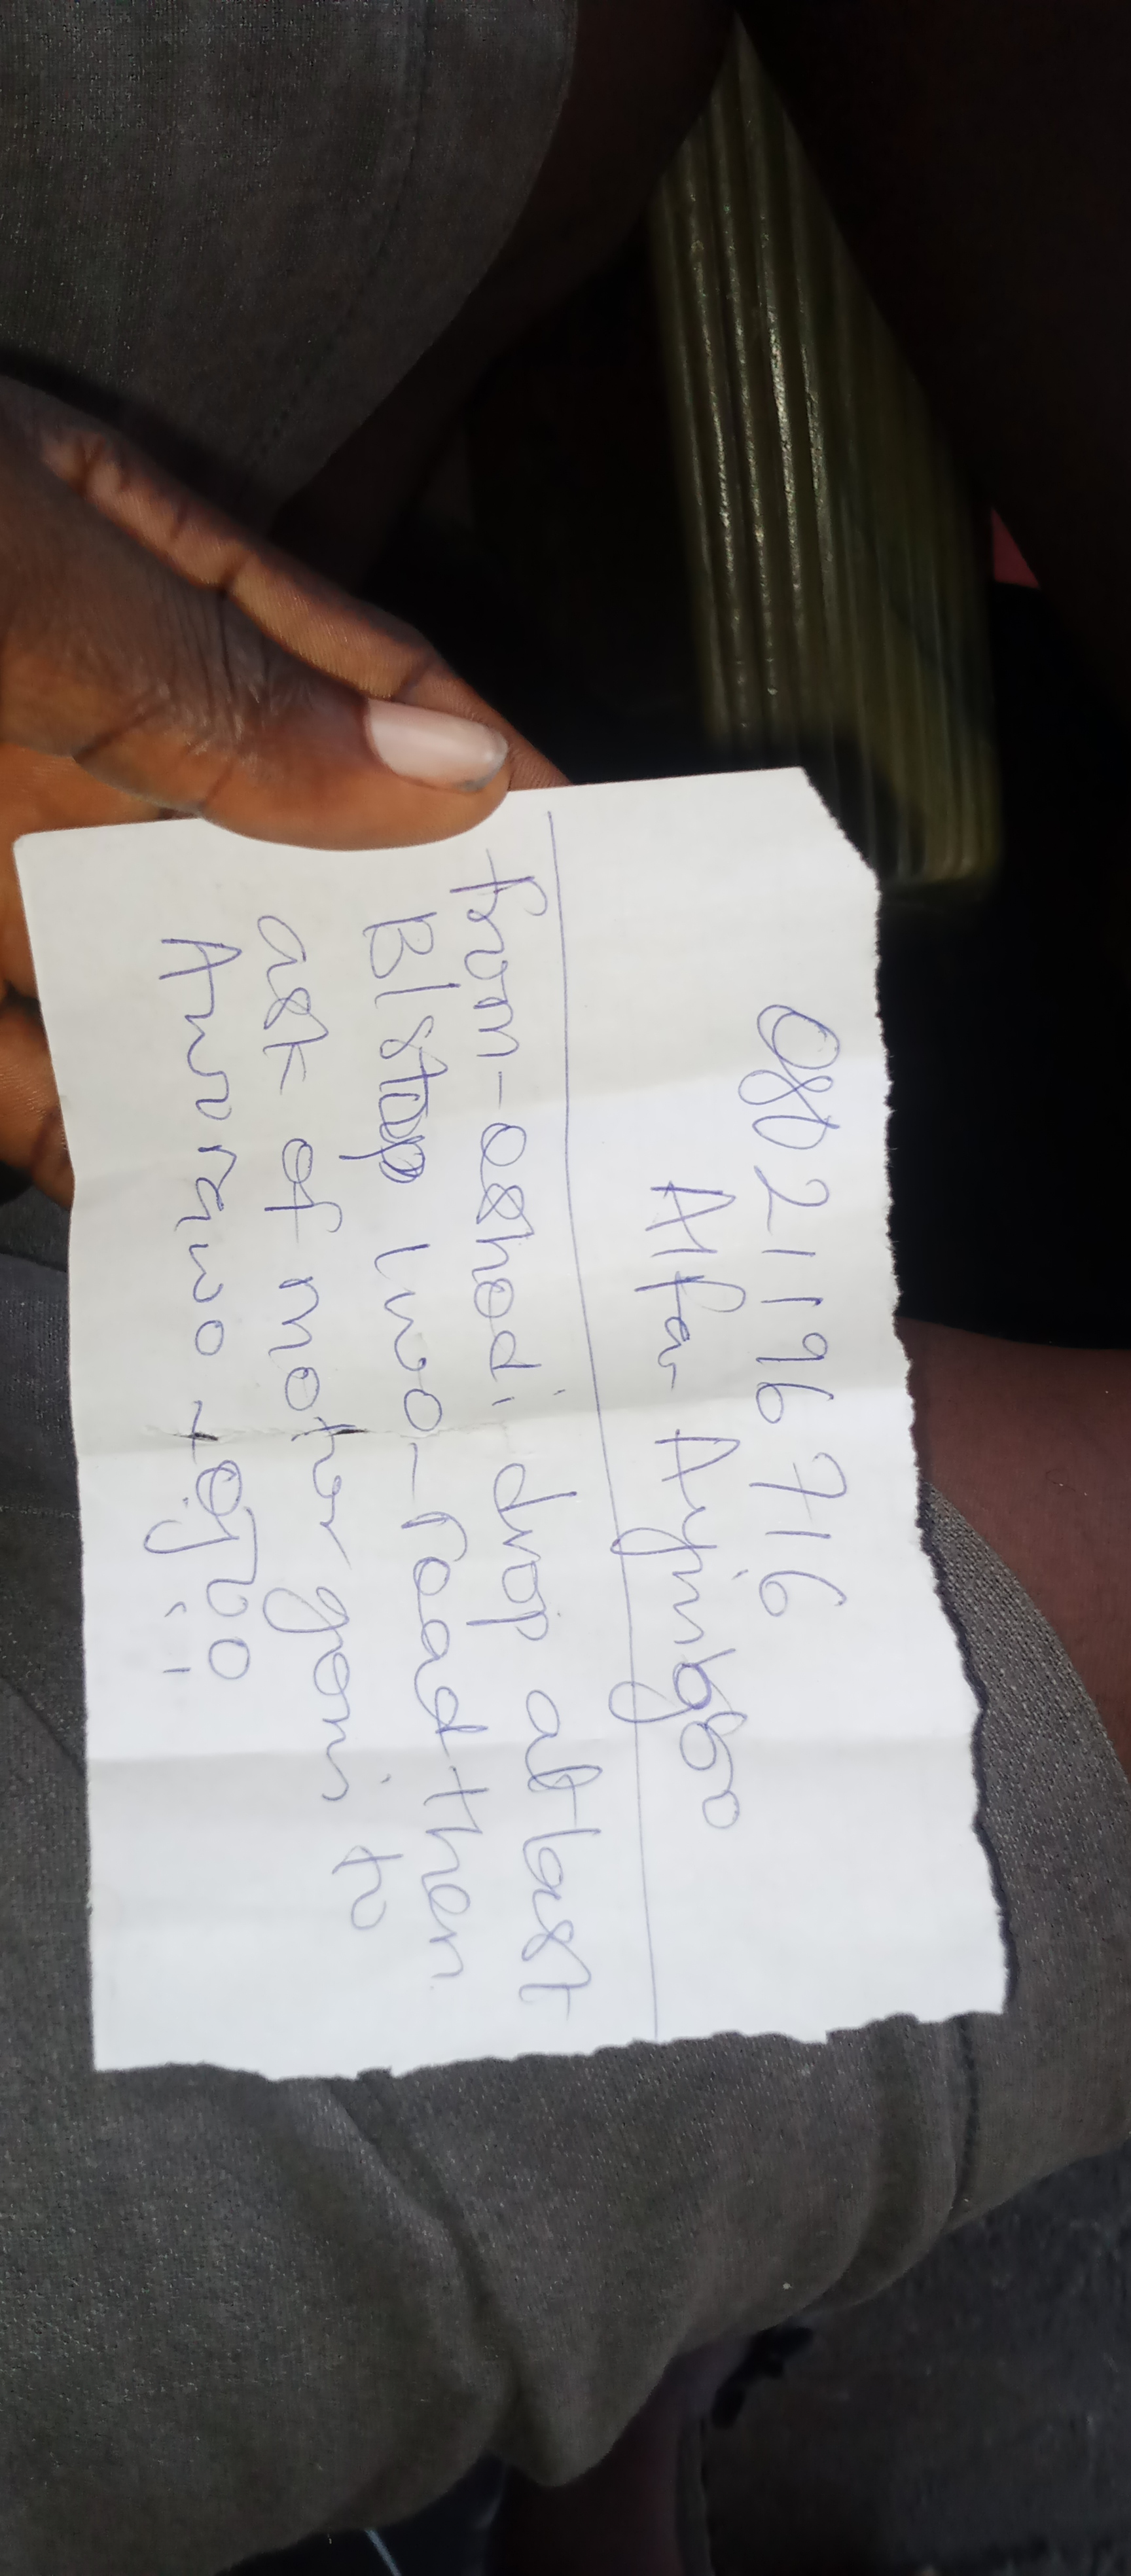 08021196716
Alfa Ayinbgo
from-oshodi drop at last
B/stop Iwo-road then
ask of motor going to